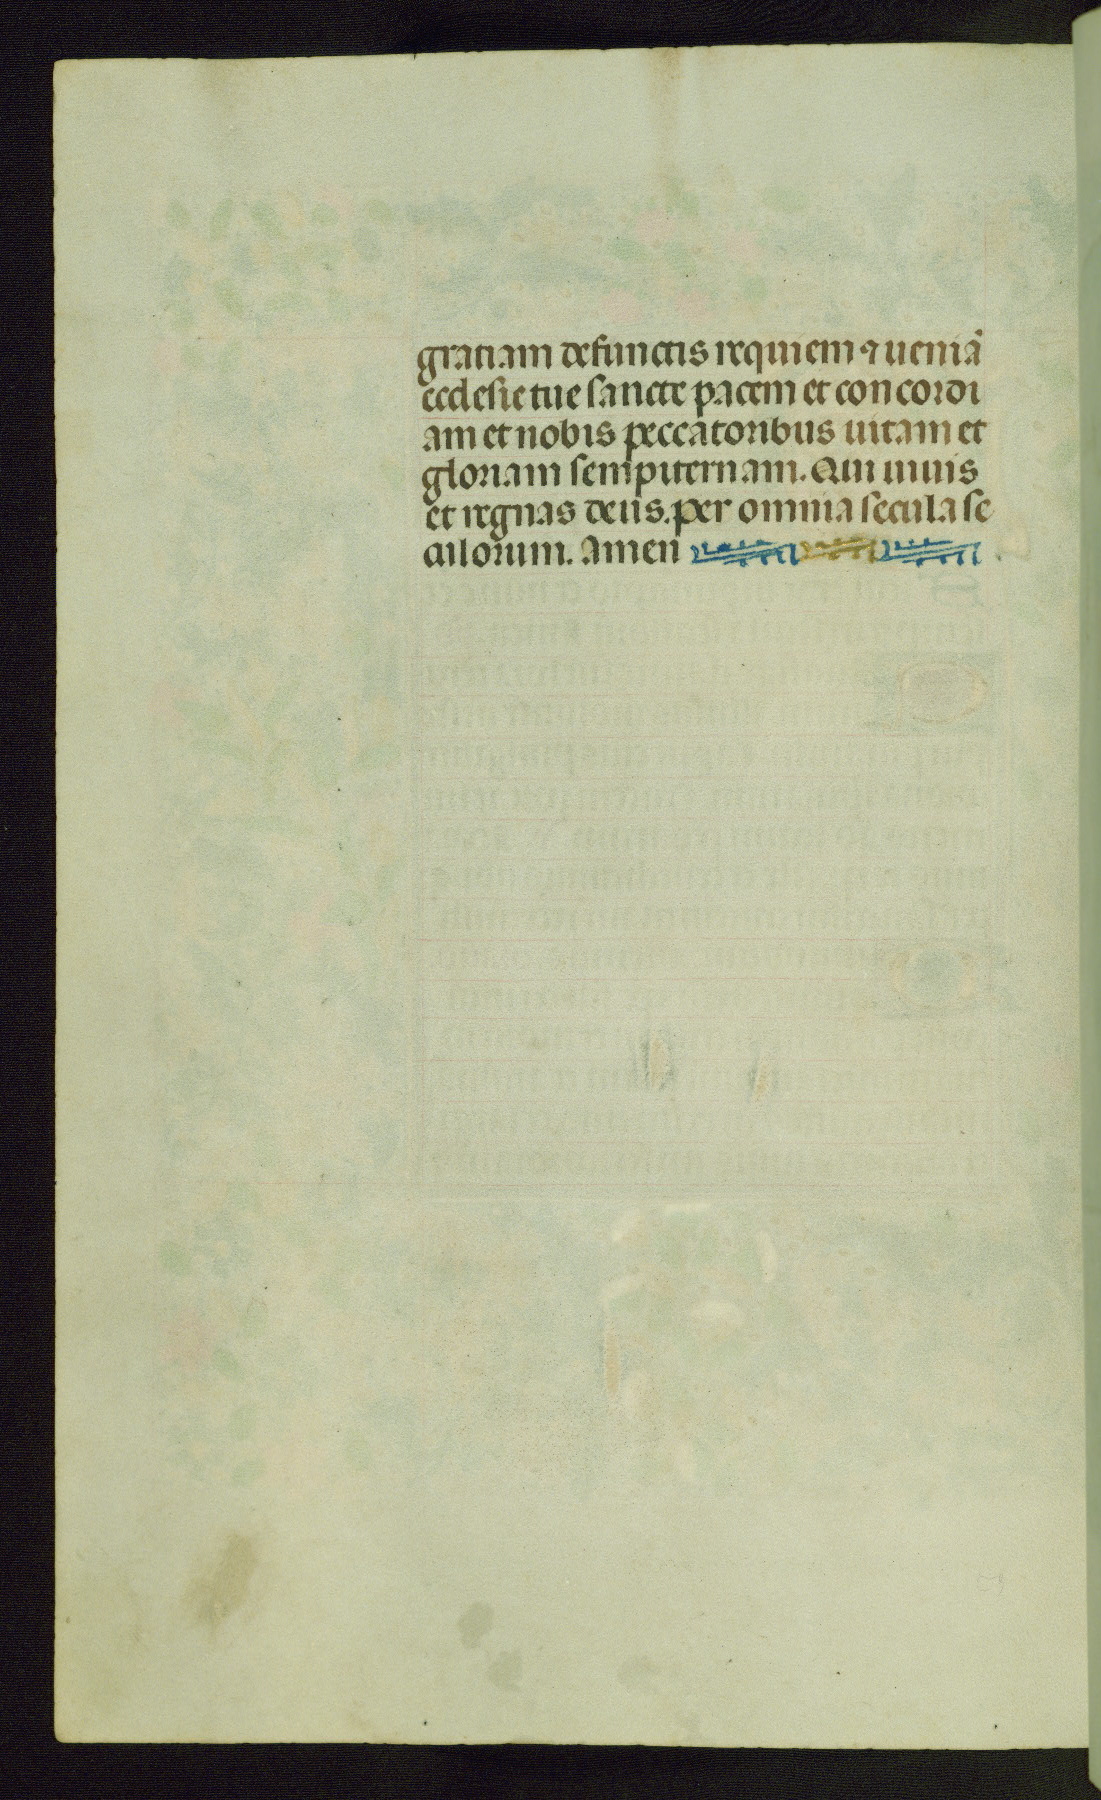 gratiam defunctis requiem ⁊ ueniã
ecclesie tue sancte pacem et concordi
am et nobis peccatoribus uitam et
gloriam sempiternam. Qui uiuis
et regnas deus. per omnia secula se
culorum. Amen